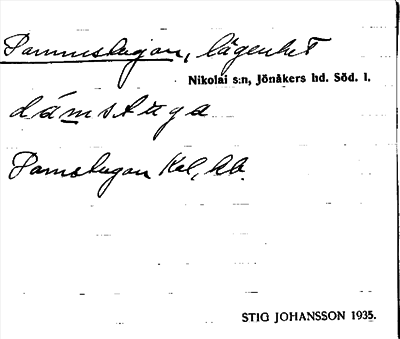 Dammstugan, lägenhet
Nikolai s:n, Jönåkers hd. Söd. l.
dámstuga
Damstugan Kal, hb.
STIG JOHANSSON 1935.